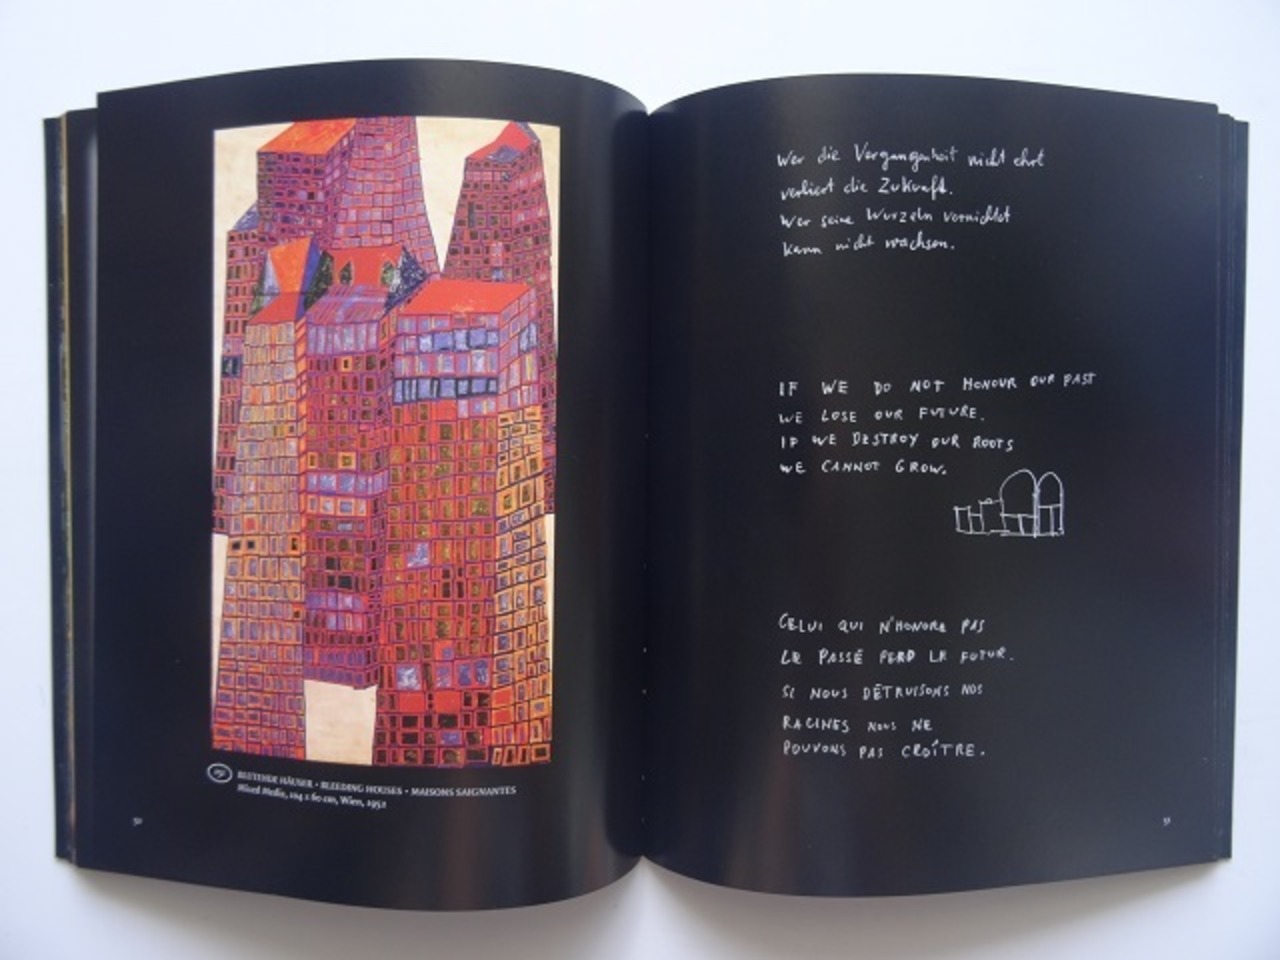 BLUTENDE HÄUSER · BLEEDING HOUSES · MAISONS SAIGNANTES
Mixed Media, 104 x 60 cm, Wien, 1952
50
Wer die Vergangenheit nicht ehrt
verliert die Zukunft.
Wer seine Wurzeln vernichtet
kann nicht wachsen.
IF WE DO NOT HONOUR OUR PAST
WE LOSE OUR FUTURE.
IF WE DESTROY OUR ROOTS
WE CANNOT GROW.
CELUI QUI N'HONORE PAS
LE PASSÉ PERD LE FUTUR.
SI NOUS DÉTRUISONS NOS
RACINES NOUS NE
POUVONS PAS CROÎTRE.
51